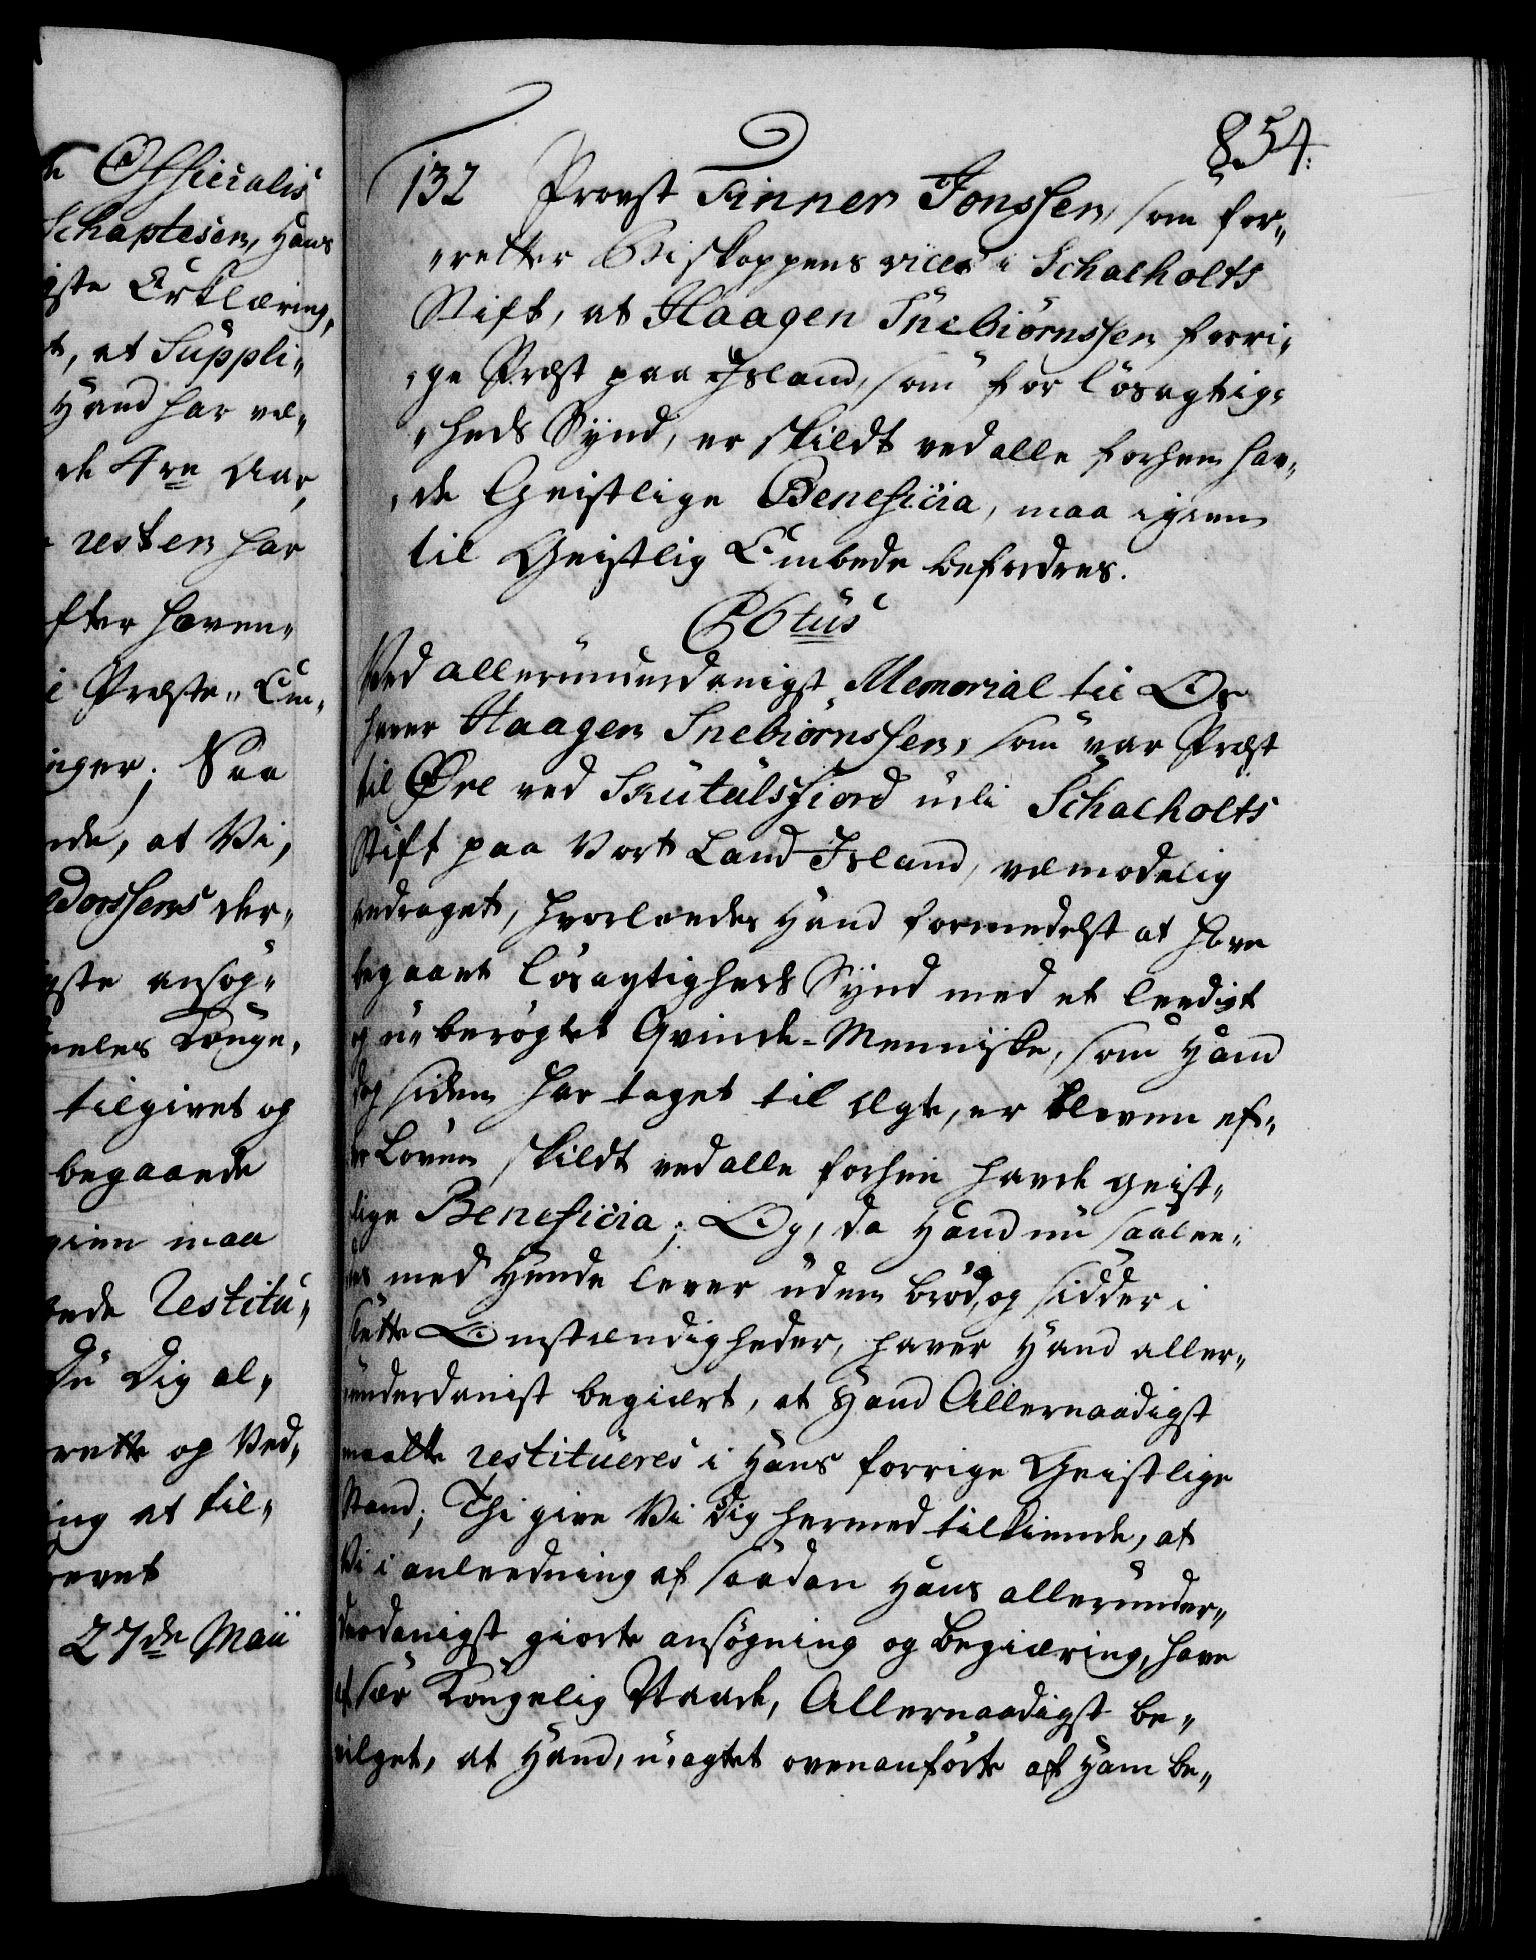 n Officialis
Schaptesen, Hans
gste Erklæring,
t, at Suppli-
Hand har væ-
de 4re Aar,
resten har
fter haven-
i Præste-Em-
inger; Saa
ede, at Vi,
dorssens der-
gste ansøg-
tilgivet og
begaaede
gien maa
ede restitu-
Du Dig al-
rette og Ved-
ing at til-
evet
27de Maii
854.
132 Provst Finner Jonssen, som for-
retter Biskoppens vices i Schalholts
Stift, at Haagen Snebiørnssen forri-
ge Præst paa Island, som for løsagtig-
heds Synd, er skildt ved alle forhen hav-
de Geistlige Beneficia, maa igien
til Geistlig Embede befordres.
PStus
Ved allerunderdanigst Memorial til Os
haver Haagen Snebiørnssen, som var Præst
til Øre ved Skutulsfiord udi Schalholts
Stift paa Vort Land Island, vemodelig
andraget, hvorlunder Hand formedelst at have
begaaet løsagtigheds Synd med et leedigt
og u-berøgtet Qvinde-Menniske, som Hand
dog siden har taget til Ægte, er bleven ef-
ter Loven skildt ved alle forhen havde geist-
lige Beneficia; Og, da Hand nu saalee-
des med Hende lever uden brød, og sidder i
slette Omstændigheder, haver Hand aller-
underdanist begiært, at Hand Allernaadigst
maatte restitueres i Hans forrige Geistlige
Stand; Thi give Vi Dig hermed tilkiende, at
Vi i anleedning af saadan Hans allerunder-
derdanigst giorte ansøgning og begiæring, have
af sær Kongelig Naade, Allernaadigst be-
vilget, at Hand, u-agtet ovenanførte af Ham be-